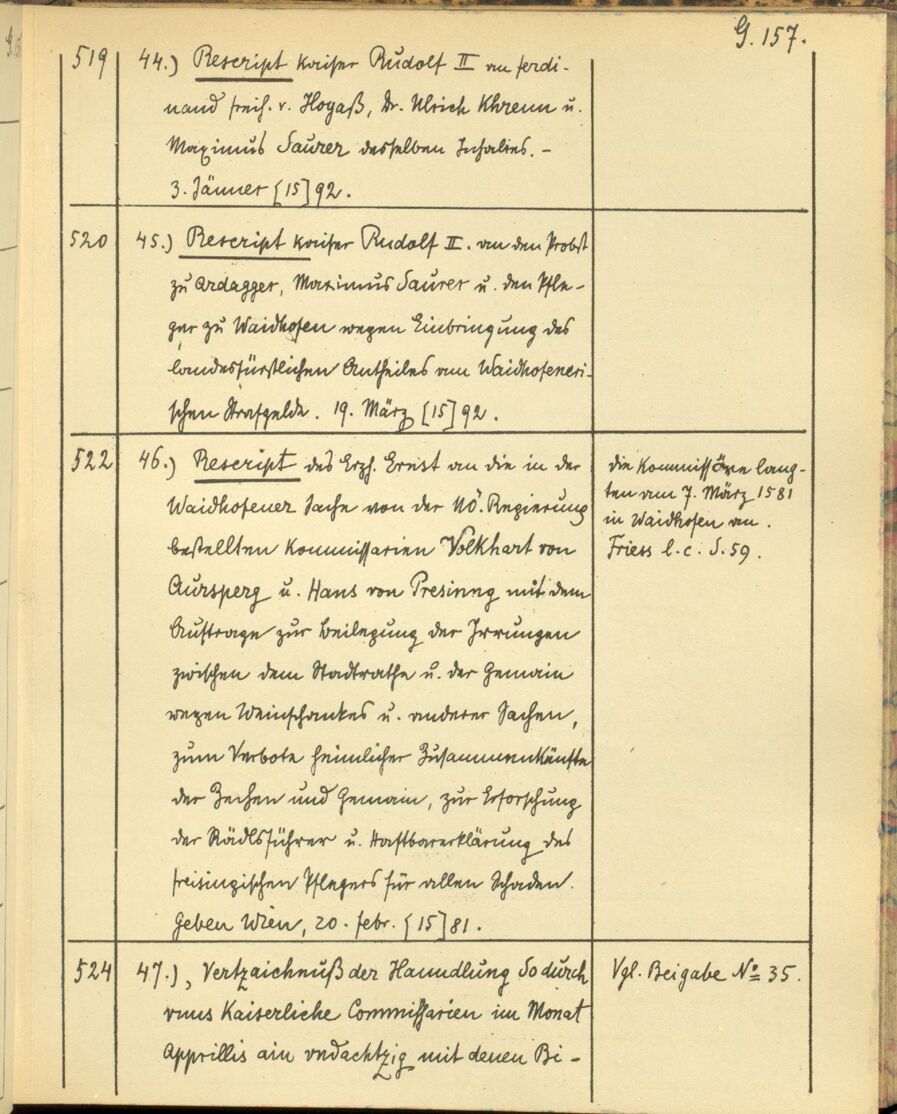 G. 157.
519 44.) Rescript Kaiser Rudolf II an Ferdi-
nand Freih. v. Hoyaß, Dr. Ulrich Khrenn u.
Maximus Saurer desselben Inhaltes. –
3. Jänner [15]92.
520 45.) Rescript Kaiser Rudolf II. an den Probst
zu Ardagger, Maximus Saurer u. den Pfle-
ger zu Waidhofen wegen Einbringung des
landesfürstlichen Antheiles am Waidhofeneri-
schen Strafgelde. 19. März [15]92.
522 46.) Rescript des Erzh. Ernst an die in der
Waidhofener Sache von der NÖ. Regierung
bestellten Kommissarien Volkhart von
Aursperg u. Hans von Presinng mit dem
Auftrage zur Beilegung der Irrungen
zwischen dem Stadtrathe u. der Gemain
wegen Weinschankes u. anderer Sachen,
zum Verbote heimlicher Zusammenkünfte
der Zechen und Gemain, zur Erforschung
der Rädlsführer u. Haftbarerklärung des
freisingischen Pflegers für allen Schaden.
Geben Wien, 20. Febr. [15]81.
die Kommissäre lang-
ten am 7. März 1581
in Waidhofen an.
Friess l. c. S. 59.
524 47.) „Vertzaichnuß der Hanndlung So durch
vnns Kaiserliche Commissarien im Monat
Apprillis ain vndachtzig mit denen Bi-
Vgl. Beigabe No 35.